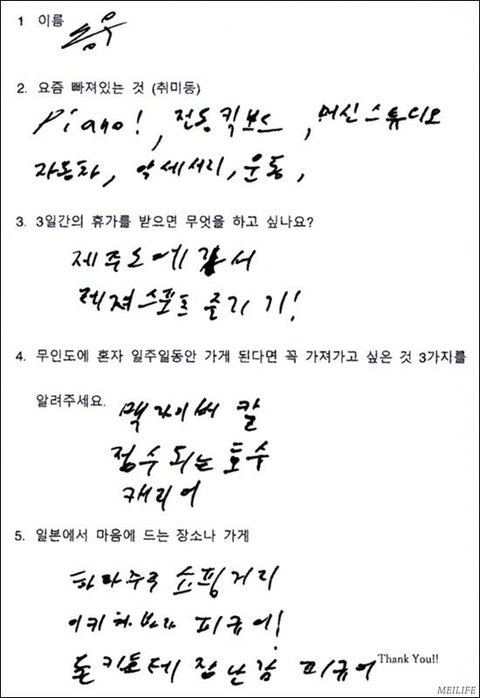 1 이름 승우
2. 요즘 빠져있는 것 (취미등)
Piano!, 전동킥보드, 머신스튜디오
자동차, 악세서리, 운동,
3. 3일간의 휴가를 받으면 무엇을 하고 싶나요?
제주도에 가서
레져스포츠 즐기기!
4. 무인도에 혼자 일주일동안 가게 된다면 꼭 가져가고 싶은 것 3가지를
알려주세요. 맥가이버 칼
잠수되는 호수
캐리어
5. 일본에서 마음에 드는 장소나 가게
하라주쿠 쇼핑거리
아키하바라 피규어!
돈키호테 장난감 피규어
Thank You!!
MEILIFE